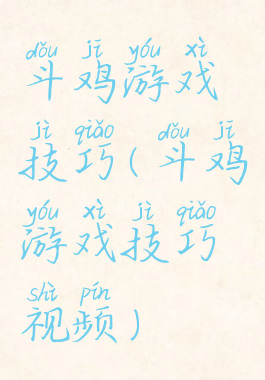 dǒu jī yóu xì
斗鸡游戏
jì qiǎo dǒu jī
技巧(斗鸡
yóu xì jì qiǎo
游戏技巧
shì pín
视频)